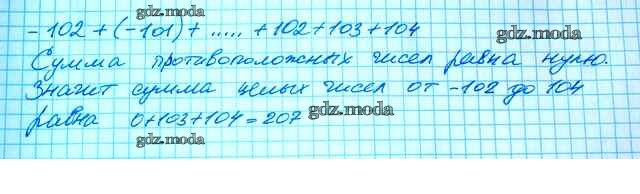 -102 + (-101) + ..... + 102 + 103 + 104
Сумма противоположных чисел равна нулю.
Значит сумма целых чисел от -102 до 104
равна 0 + 103 + 104 = 207
gdz.moda
gdz.moda
gdz.moda
gdz.moda
gdz.moda